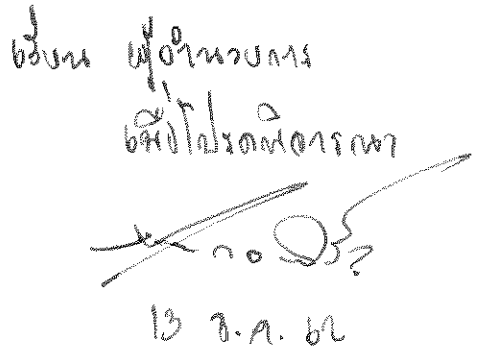 เรียน ผู้อำนวยการ
เพื่อโปรดพิจารณา
13 ธ.ค. 62